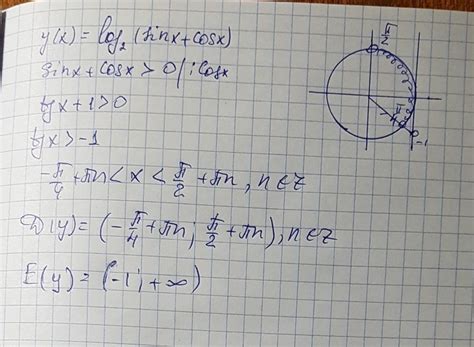 y(x) = log₂ (sinx+cosx)
sinx+cosx > 0 | : cosx
tgx+1>0
tgx>-1
-π/4 + πn < x < π/2 + πn, n∈z
D(y) = (-π/4 + πn; π/2 + πn), n∈z
E(y) = (-1; +∞)
π/2
-π/4
-1